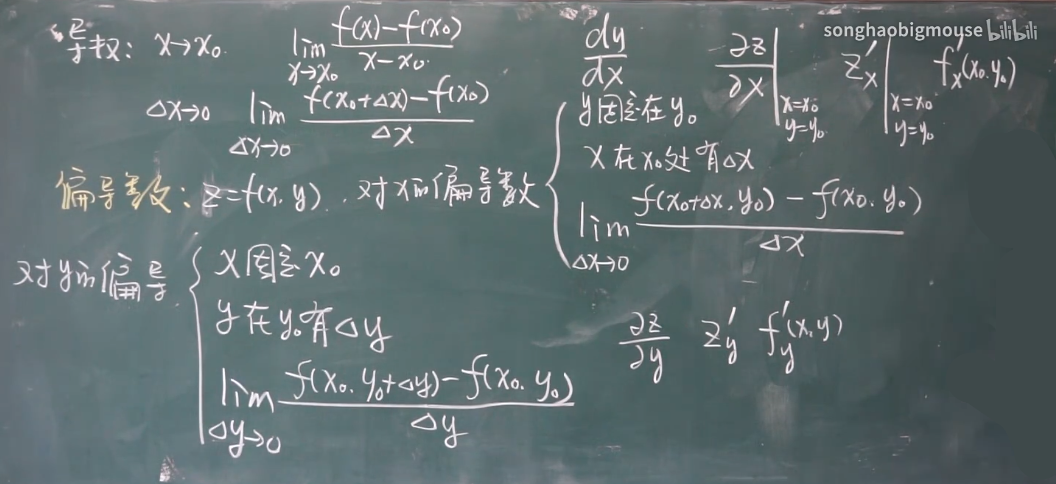 songhaobigmouse bilibili
导权: x→x₀ lim_{x→x₀} (f(x)-f(x₀))/(x-x₀)
Δx→0 lim_{Δx→0} (f(x₀+Δx)-f(x₀))/Δx
dy/dx ∂z/∂x|_{x=x₀ y=y₀} z'_x|_{x=x₀ y=y₀} f'_x(x₀,y₀)
偏导数: z=f(x,y), 对x的偏导数
y固定在y₀
x在x₀处有Δx
lim_{Δx→0} (f(x₀+Δx,y₀)-f(x₀,y₀))/Δx
对y的偏导
x固定x₀
y在y₀有Δy
lim_{Δy→0} (f(x₀,y₀+Δy)-f(x₀,y₀))/Δy
∂z/∂y z'_y f'_y(x,y)